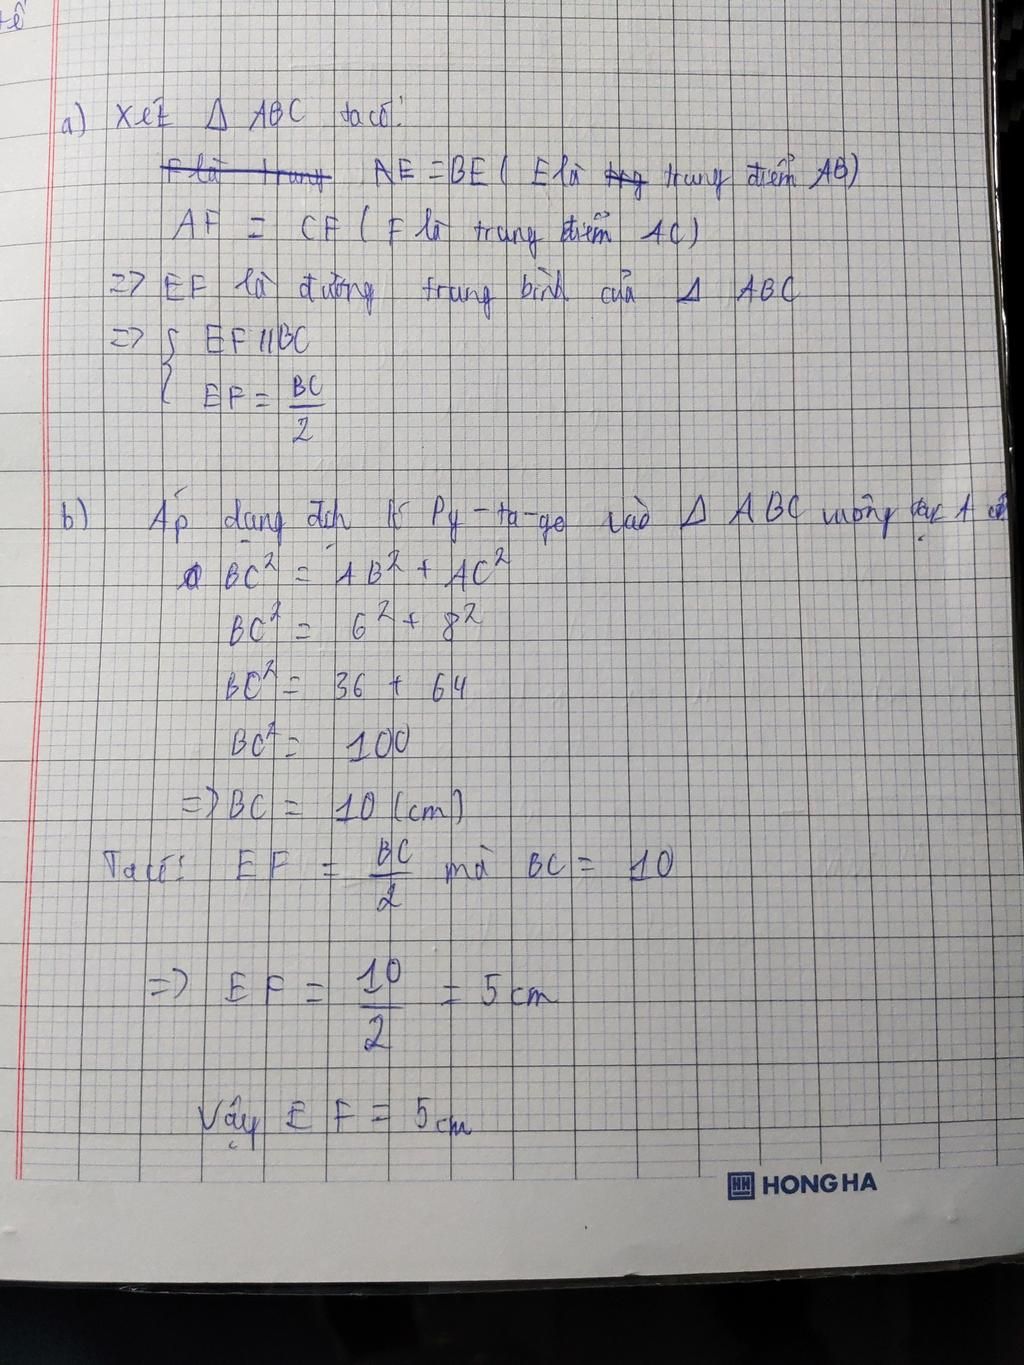 tế
a) Xét Δ ABC ta có:
F là trung AE = BE ( E là trung điểm AB)
AF = CF ( F là trung điểm AC)
=> EF là đường trung bình của Δ ABC
=> { EF // BC
EF = BC/2
b) Áp dụng định lí Py-ta-go vào Δ ABC vuông tại A có
BC² = AB² + AC²
BC² = 6² + 8²
BC² = 36 + 64
BC² = 100
=> BC = 10 (cm)
Ta có: EF = BC/2 mà BC = 10
=> EF = 10/2 = 5 cm
Vậy EF = 5 cm
HH HONG HA